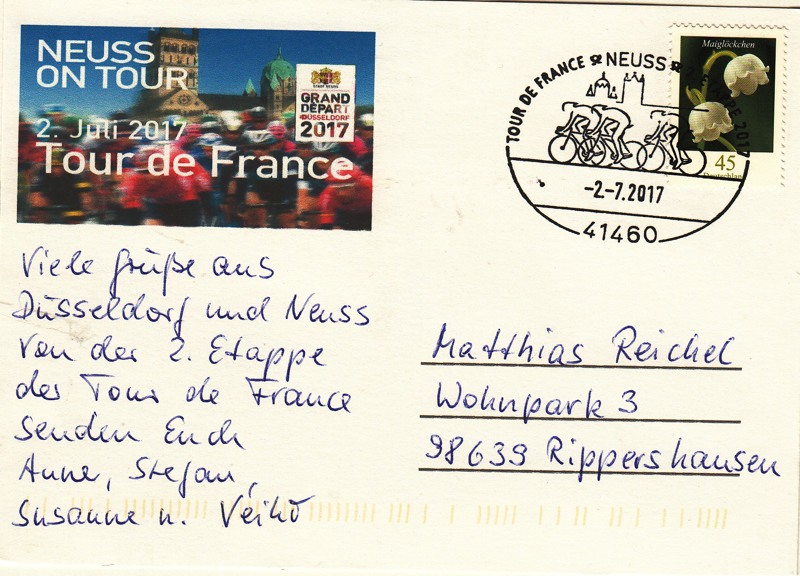 NEUSS
ON TOUR
2. Juli 2017
Tour de France
STADT NEUSS
GRAND
DÉPART
DÜSSELDORF
2017
TOUR DE FRANCE NEUSS 2. ETAPPE 2017
-2-7.2017
41460
Maiglöckchen
45
Deutschland
Viele Grüße aus
Düsseldorf und Neuss
von der 2. Etappe
des Tour de France
senden Euch
Anne, Stefan,
Susanne u. Veiko
Matthias Reichel
Wohnpark 3
98639 Rippershausen